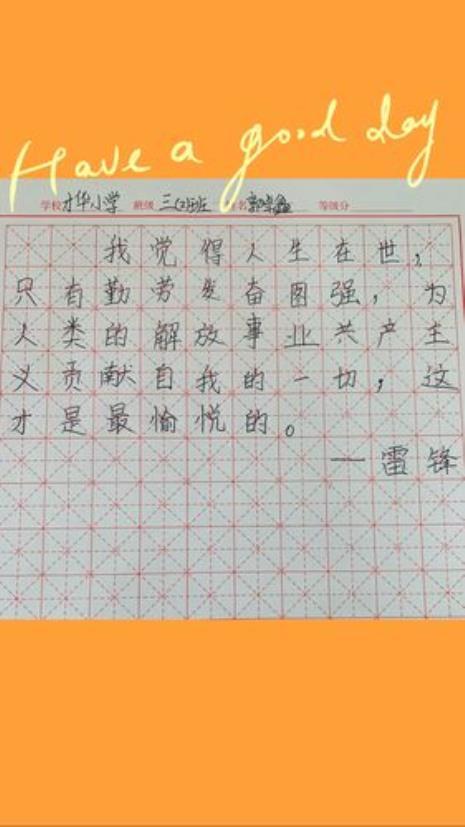 Have a good day
学校 才华小学 班级 三(2)班 姓名 等级分
我觉得人生在世，
只有勤劳发奋图强，为
人类的解放事业共产主
义贡献自我的一切，这
才是最愉悦的。
——雷锋